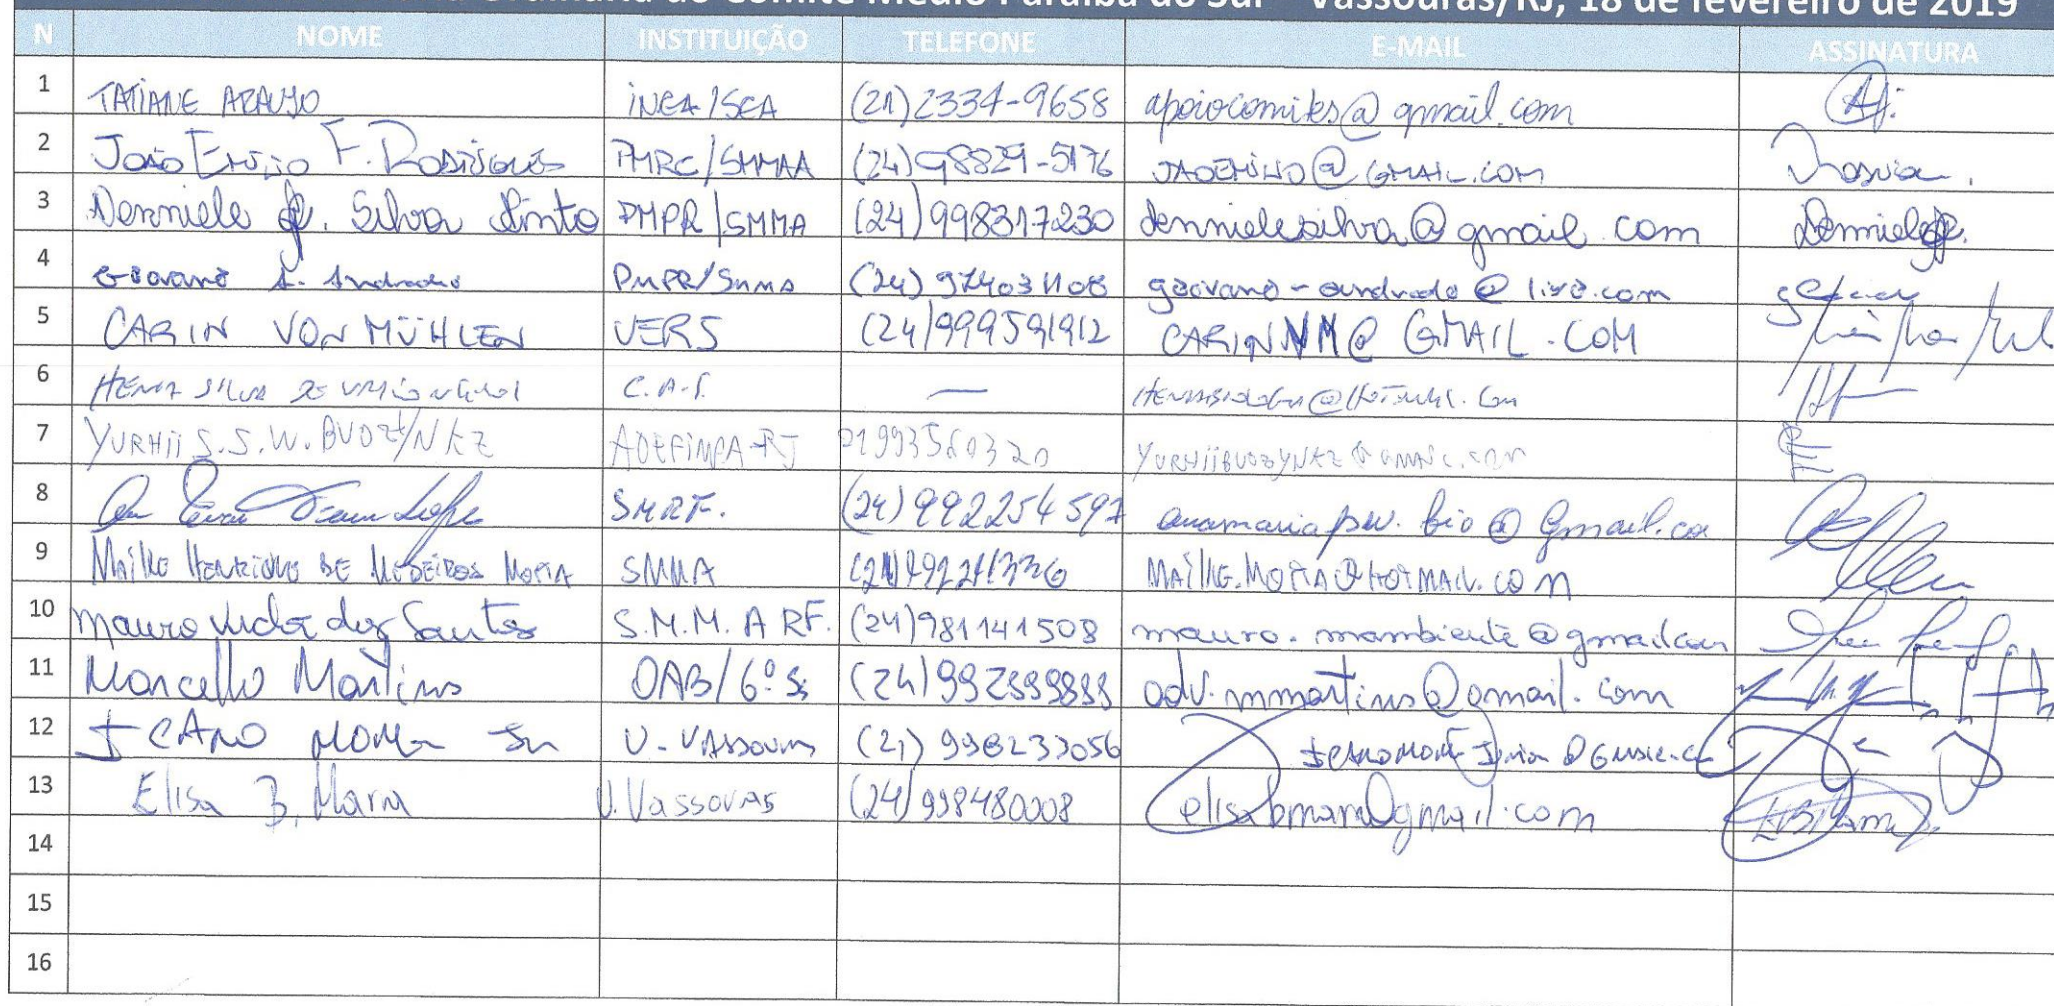 Ordinária do Comitê Médio Paraíba do Sul – Vassouras/RJ, 18 de fevereiro de 2019
N NOME INSTITUIÇÃO TELEFONE E-MAIL ASSINATURA
1 TATIANE ARAUJO INEA/SEA (21) 2334-9658 apoiocomites@gmail.com
2 João Emílio F. Rodrigues PMRC/SMMAA (24) 98829-5176 JAOEMILIO@GMAIL.COM
3 Denniele Silva Pinto PMPR/SMMA (24) 998317230 dennielesilva@gmail.com
4 Giovano A. Andrade PMPR/SMMA (24) 974031108 giovano-andrade@live.com
5 CARIN VON MÜHLEN UERJ (24) 999591912 CARINVM@GMAIL.COM
6 C.A.F. —
7 YURHII S.S.W. BUDZYNKZ ADEFIMPA-RJ 21993560320 YURHIIBUDZYNKZ@GMAIL.COM
8 SMRF. (24) 992254597 @Gmail.co
9 Maiko Henrique de Medeiros Mota SMMA
10 mauro victor dos Santos S.M.M.A RF. (24) 981141508 mauro.mambiente@gmailcom
11 Marcello Martins OAB/6º S. adv.mmartins@gmail.com
12 U. VASSOURAS (21) 998233056
13 Elisa B. Mara U. VASSOURAS (24) 998480008 elisabmara@gmail.com
14
15
16